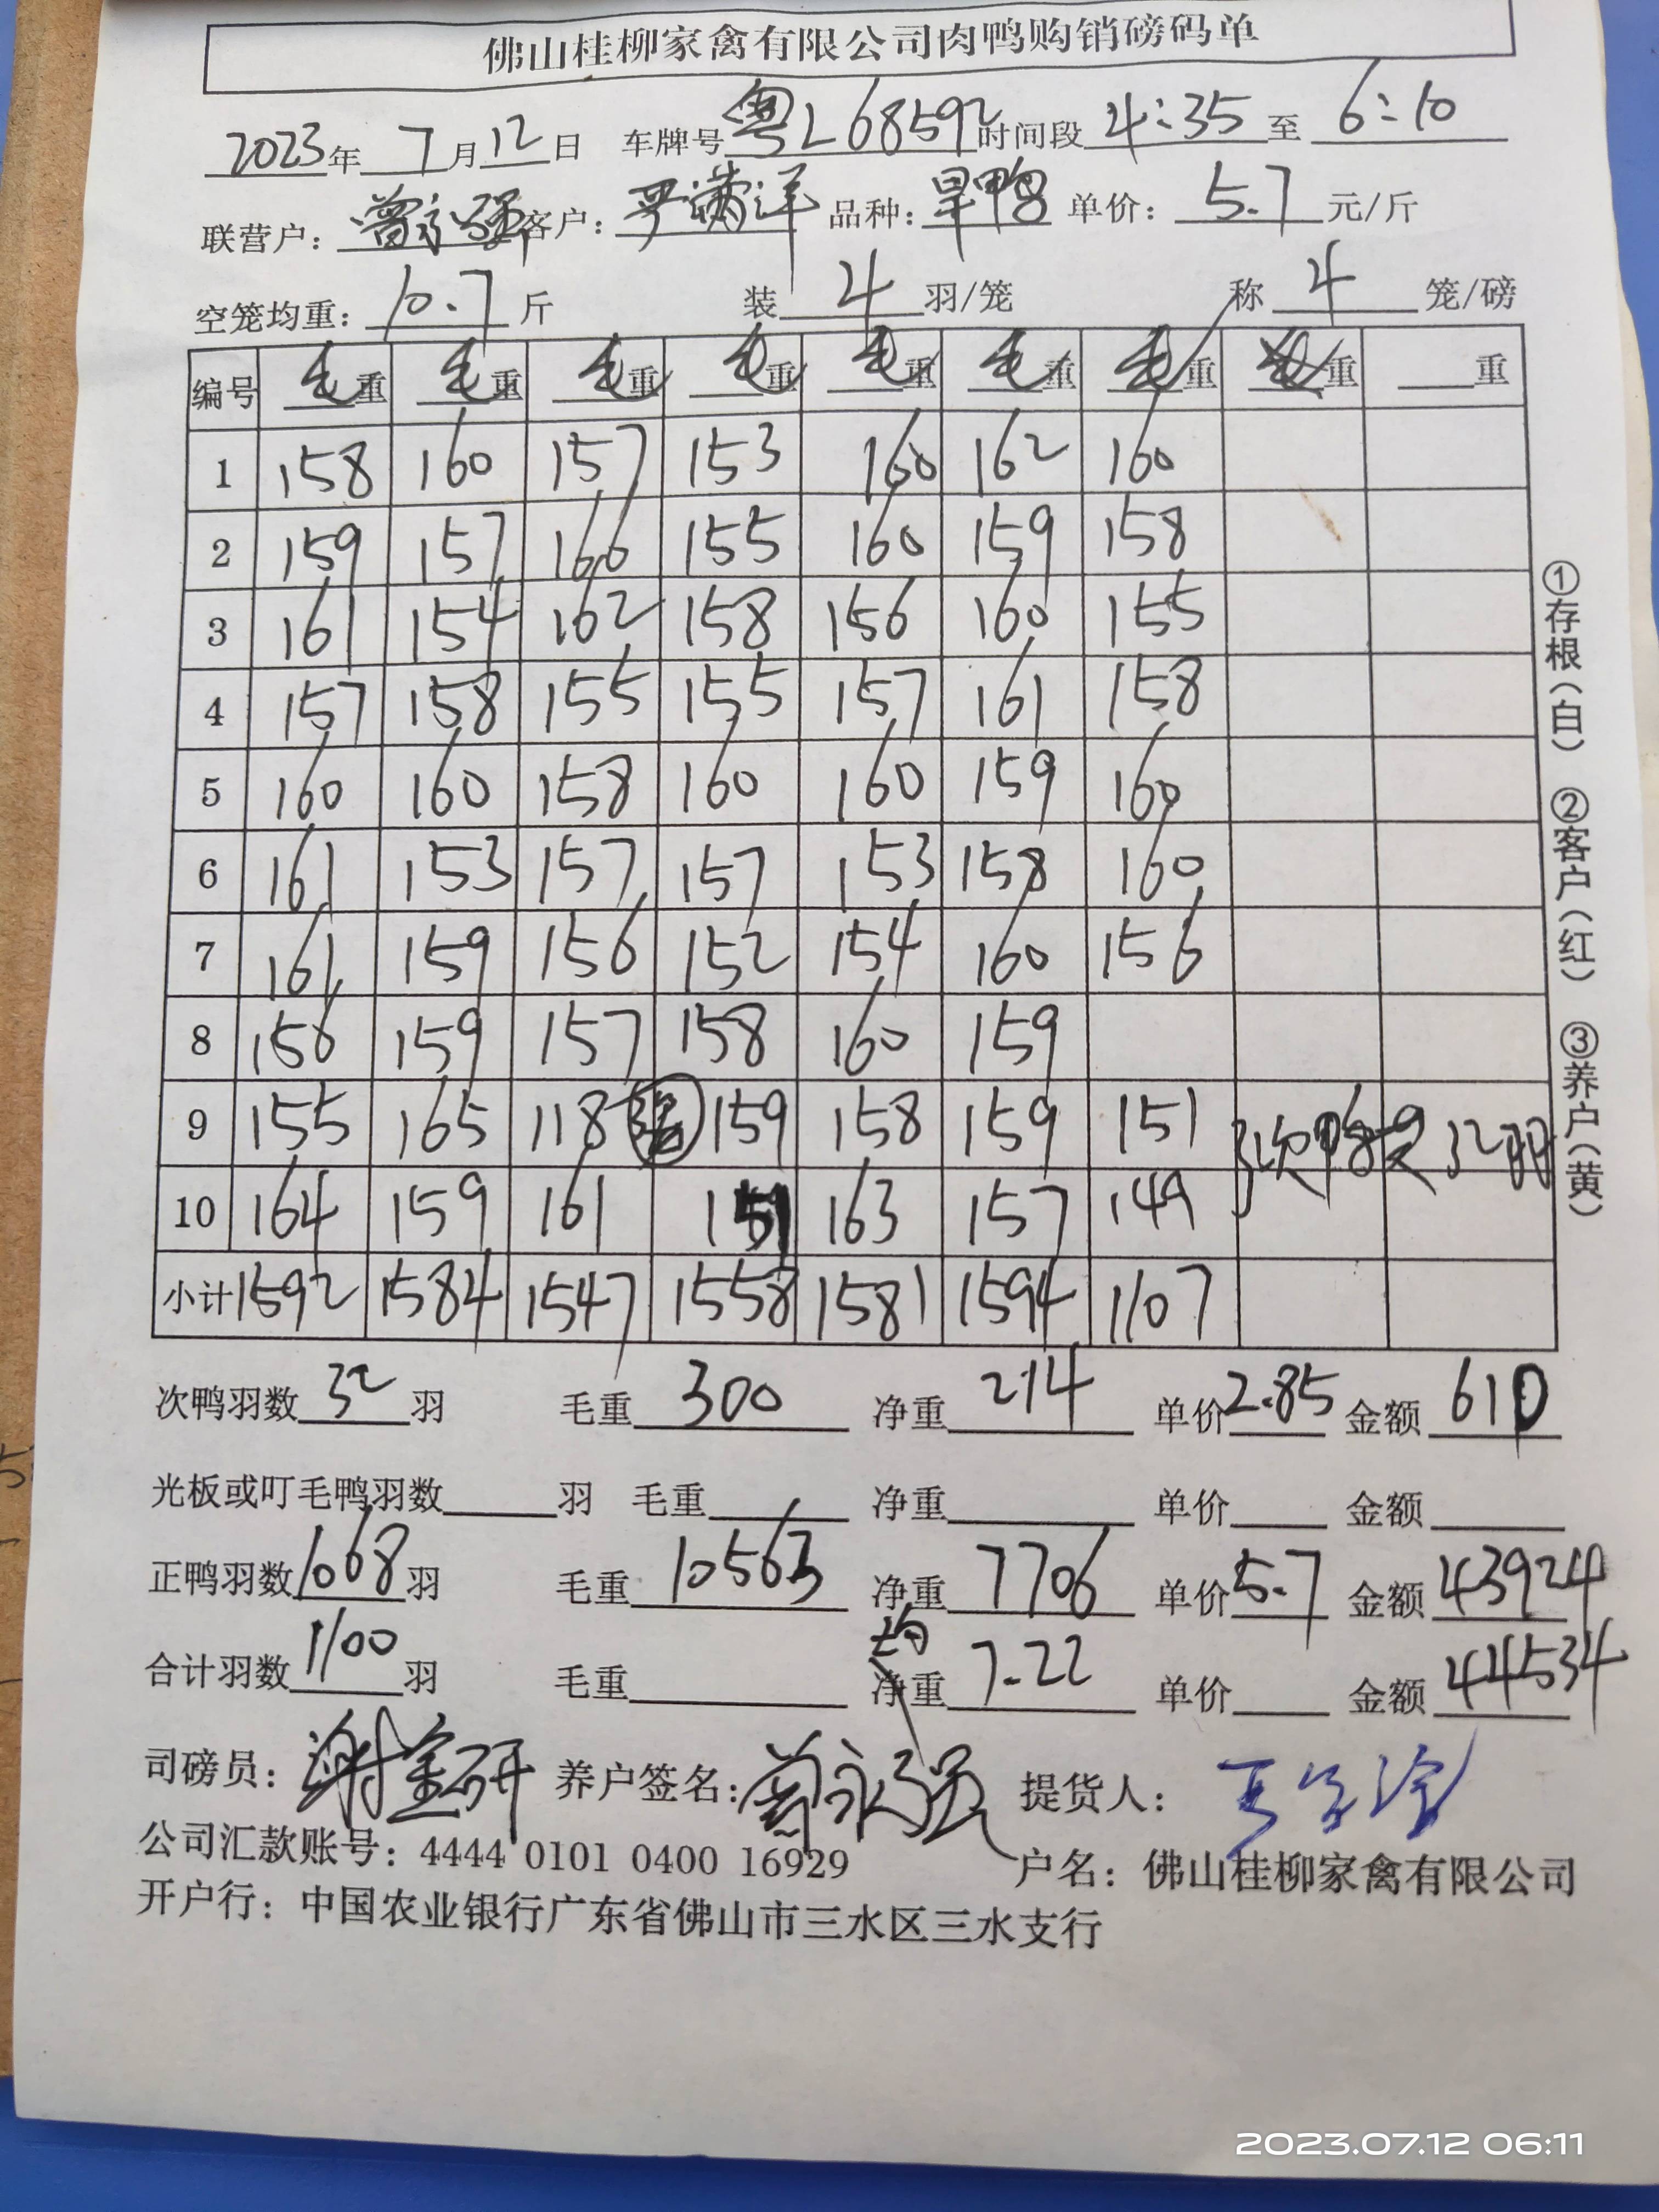 佛山桂柳家禽有限公司肉鸭购销磅码单
2023年 7月12日 车牌号 粤L68592 时间段 4:35 至 6:10
联营户: 曾永强 客户: 严满洋 品种: 旱鸭 单价: 5.7 元/斤
空笼均重: 10.7 斤 装 4 羽/笼 称 4 笼/磅
编号 毛重 毛重 毛重 毛重 毛重 毛重 毛重 重 重
1 158 160 157 153 160 162 160
2 159 157 160 155 160 159 158
3 161 154 162 158 156 160 155
4 157 158 155 155 157 161 158
5 160 160 158 160 160 159 160
6 161 153 157 157 153 158 160
7 161 159 156 152 154 160 156
8 156 159 157 158 160 159
9 155 165 118 159 158 159 151 次鸭 32羽
10 164 159 161 151 163 157 149
小计 1592 1584 1547 1558 1581 1594 1107
次鸭羽数 32 羽 毛重 300 净重 214 单价 2.85 金额 610
光板或叮毛鸭羽数 羽 毛重 净重 单价 金额
正鸭羽数 1068 羽 毛重 10563 净重 7706 单价 5.7 金额 43924
合计羽数 1100 羽 毛重 均 净重 7.22 单价 金额 44534
司磅员: 谢金研 养户签名: 曾永强 提货人:
公司汇款账号: 4444 0101 0400 16929 户名: 佛山桂柳家禽有限公司
开户行: 中国农业银行广东省佛山市三水区三水支行
①存根(白) ②客户(红) ③养户(黄)
2023.07.12 06:11